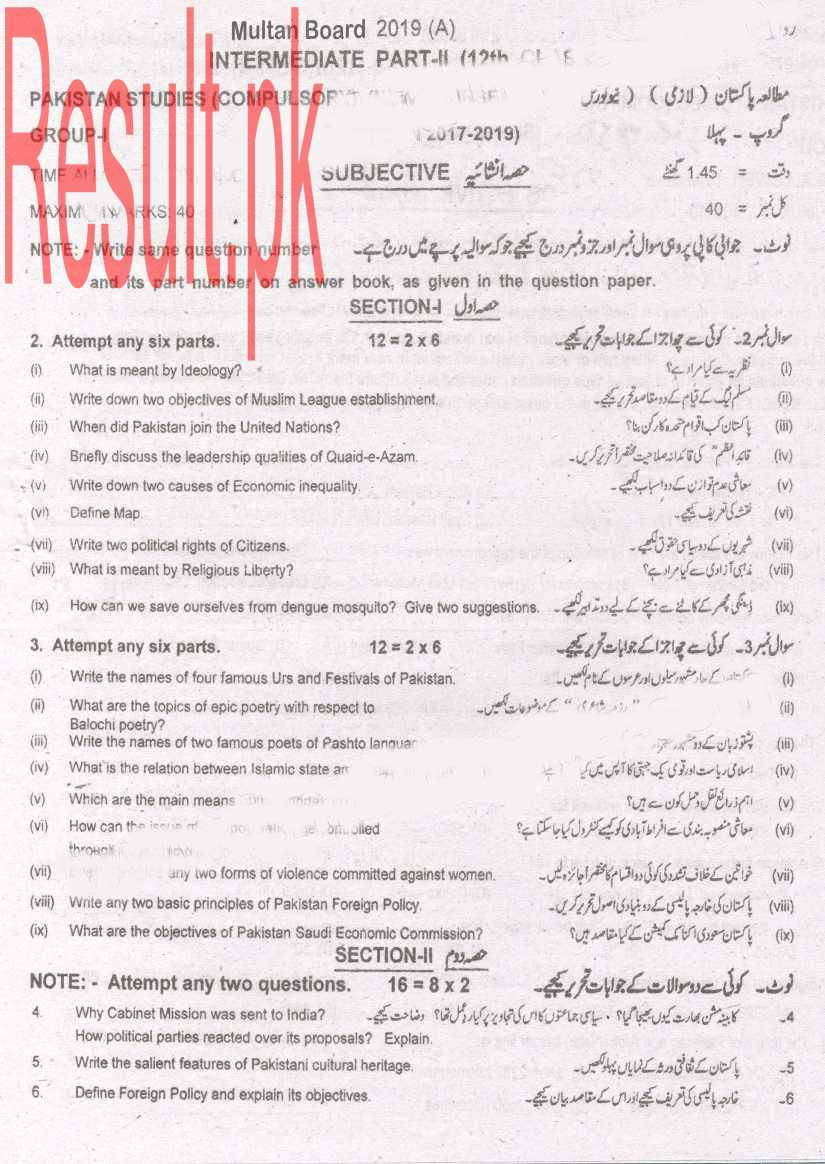 Multan Board 2019 (A)
INTERMEDIATE PART-II (12th
PAKISTAN STUDIES (COMPULSORY مطالعہ پاکستان ( لازمی ) ( نیوکورس
GROUP-I 2017-2019) گروپ - پہلا
TIME SUBJECTIVE حصہ انشائیہ وقت = 1.45 گھنٹے
MAXIMUM MARKS: 40 کل نمبر = 40
NOTE: - Write same question number نوٹ۔ جوابی کاپی پر وہی سوال نمبر اور جزو نمبر درج کیجیے جو کہ سوالیہ پرچے میں درج ہے۔
and its part number on answer book, as given in the question paper.
SECTION-I حصہ اول
2. Attempt any six parts. 12 = 2 x 6 سوال نمبر 2۔ کوئی سے چھ اجزا کے جوابات تحریر کیجیے۔
(i) What is meant by Ideology? نظریہ سے کیا مراد ہے؟ (i)
(ii) Write down two objectives of Muslim League establishment. مسلم لیگ کے قیام کے دو مقاصد تحریر کیجیے۔ (ii)
(iii) When did Pakistan join the United Nations? پاکستان کب اقوام متحدہ کا رکن بنا؟ (iii)
(iv) Briefly discuss the leadership qualities of Quaid-e-Azam. قائداعظمؒ کی قائدانہ صلاحیت مختصراً تحریر کریں۔ (iv)
(v) Write down two causes of Economic inequality. معاشی عدم توازن کے دو اسباب لکھیے۔ (v)
(vi) Define Map. نقشہ کی تعریف کیجیے۔ (vi)
(vii) Write two political rights of Citizens. شہریوں کے دو سیاسی حقوق لکھیے۔ (vii)
(viii) What is meant by Religious Liberty? مذہبی آزادی سے کیا مراد ہے؟ (viii)
(ix) How can we save ourselves from dengue mosquito? Give two suggestions. ڈینگی مچھر کے کاٹنے سے بچنے کے لیے دو تدابیر لکھیے۔ (ix)
3. Attempt any six parts. 12 = 2 x 6 سوال نمبر 3۔ کوئی سے چھ اجزا کے جوابات تحریر کیجیے۔
(i) Write the names of four famous Urs and Festivals of Pakistan. کے چار مشہور میلوں اور عرسوں کے نام لکھیں۔ (i)
(ii) What are the topics of epic poetry with respect to کے موضوعات لکھیں۔ (ii)
Balochi poetry?
(iii) Write the names of two famous poets of Pashto پشتو زبان کے دو مشہور (iii)
(iv) What is the relation between Islamic state اسلامی ریاست اور قومی یک جہتی کا آپس میں کیا (iv)
(v) Which are the main means اہم ذرائع نقل و حمل کون سے ہیں؟ (v)
(vi) How can the issue controlled معاشی منصوبہ بندی سے افراط آبادی کو کیسے کنٹرول کیا جا سکتا ہے؟ (vi)
through
(vii) any two forms of violence committed against women. خواتین کے خلاف تشدد کی کوئی دو اقسام کا مختصراً جائزہ لیں۔ (vii)
(viii) Write any two basic principles of Pakistan Foreign Policy. پاکستان کی خارجہ پالیسی کے دو بنیادی اصول تحریر کریں۔ (viii)
(ix) What are the objectives of Pakistan Saudi Economic Commission? پاکستان سعودی اکنامک کمیشن کے کیا مقاصد ہیں؟ (ix)
SECTION-II حصہ دوم
NOTE: - Attempt any two questions. 16 = 8 x 2 نوٹ۔ کوئی سے دو سوالات کے جوابات تحریر کیجیے۔
4. Why Cabinet Mission was sent to India? کابینہ مشن بھارت کیوں بھیجا گیا؟ سیاسی جماعتوں کا اس کی تجاویز پر کیا ردِعمل تھا؟ وضاحت کیجیے۔ 4۔
How political parties reacted over its proposals? Explain.
5. Write the salient features of Pakistani cultural heritage. پاکستان کے ثقافتی ورثہ کے نمایاں پہلو لکھیں۔ 5۔
6. Define Foreign Policy and explain its objectives. خارجہ پالیسی کی تعریف کیجیے اور اس کے مقاصد بیان کیجیے۔ 6۔
Result.pk